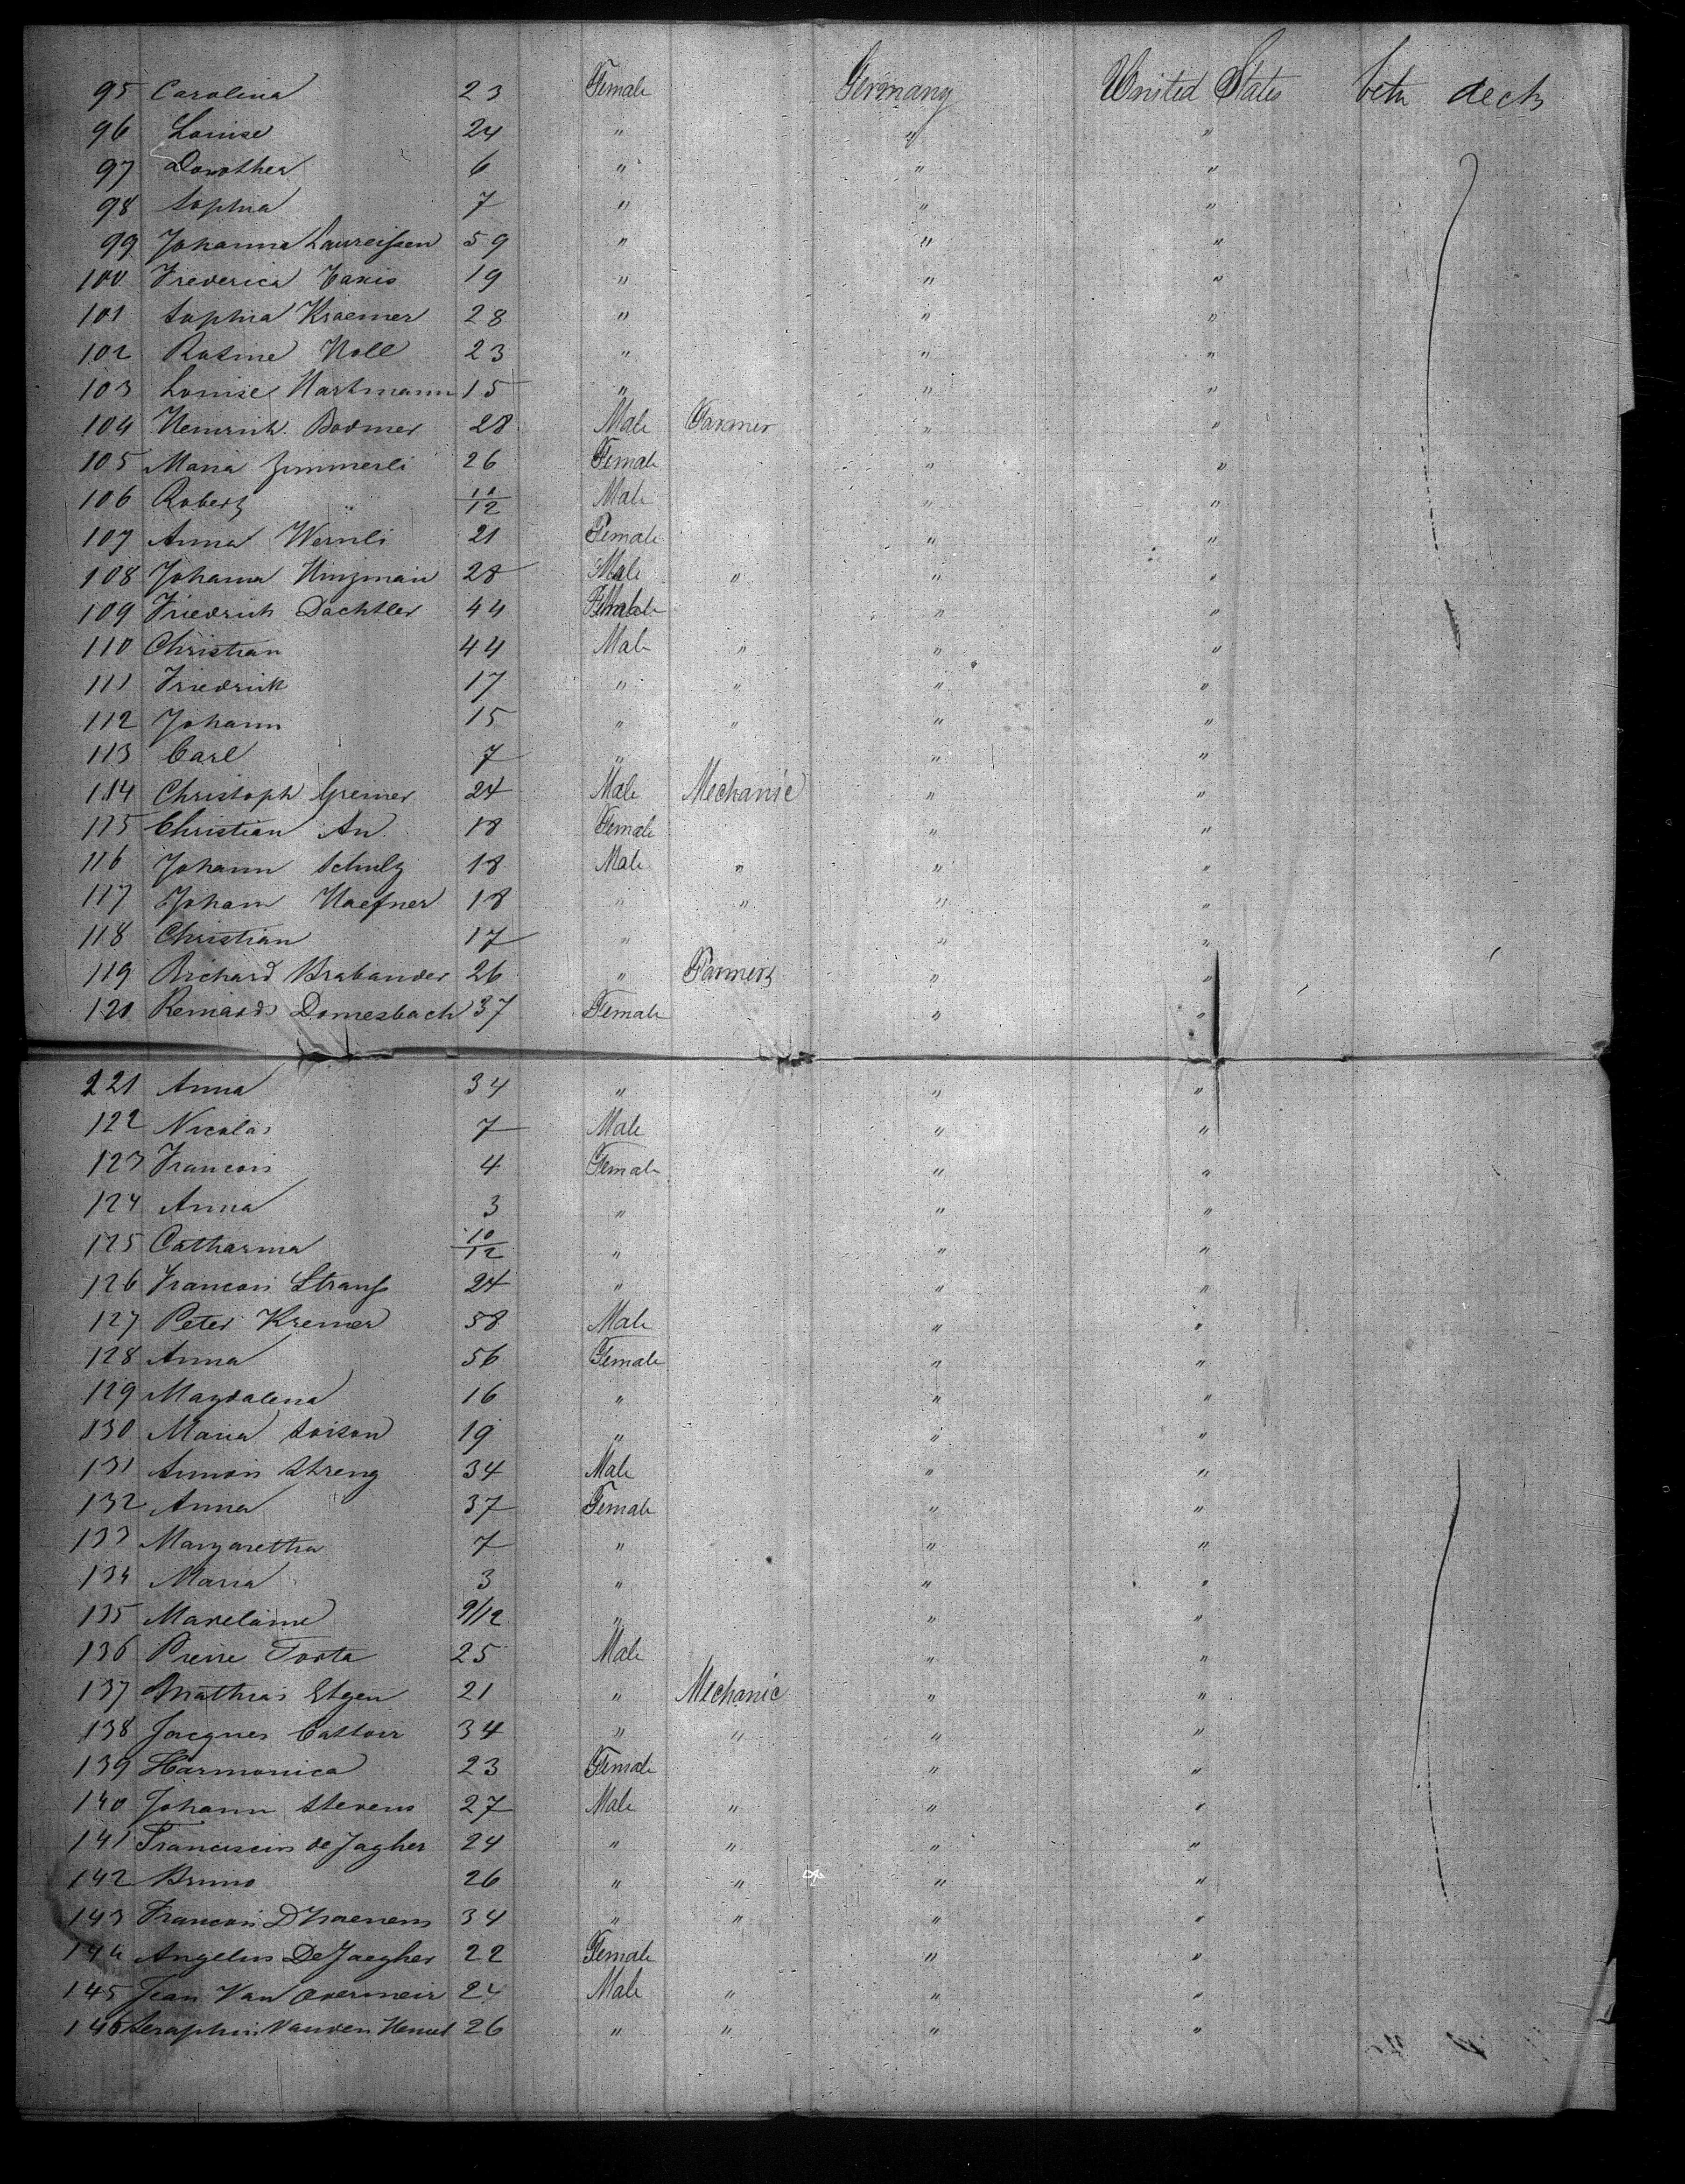 95 Carolina 23 Female Germany United States betw decks
96 Louise 24 " " "
97 Dorothea 6 " " "
98 Sophia 7 " " "
99 Johanna Laureissen 59 " " "
100 Frederica 19 " " "
101 Sophia Kraemer 28 " " "
102 Rosine Noll 23 " " "
103 Louise Hartmann 15 " " "
104 Heinrich Bodmer 28 Male Farmer " "
105 Maria Zimmerli 26 Female " "
106 Robert " 10/12 Male " "
107 Anna Wernli 21 Female " "
108 Johanna 28 Male " " "
109 Friedrich Dachtler 44 " "
110 Christian 44 Male " " "
111 Friedrich 17 " " " "
112 Johann 15 " " " "
113 Carl 7 " " "
114 Christoph Greiner 24 Male Mechanic " "
115 Christian An 18 Female " "
116 Johann Schulz 18 Male " " "
117 Johann Haefner 18 " " " "
118 Christian 17 " " "
119 Richard Brabander 26 " Farmers " "
120 Domesbach 37 Female " "
221 Anna 34 " " "
122 Nicolas 7 Male " "
123 Francois 4 Female " "
124 Anna 3 " " "
125 Catharina 10/12 " " "
126 Francois Strauss 24 " " "
127 Peter Kremer 58 Male " "
128 Anna 56 Female " "
129 Magdalena 16 " " "
130 Maria Soison 19 " " "
131 Streng 34 Male " "
132 Anna 37 Female " "
133 Margaretha 7 " " "
134 Maria 3 " " "
135 9/12 " " "
136 Pierre Torta 25 Male " "
137 Mathias Etgen 21 " Mechanic " "
138 Jacques Cattoir 34 " " " "
139 Harmonica 23 Female " "
140 Johann Stevens 27 Male " " "
141 Franciscus de Jagher 24 " " " "
142 Bruno 26 " " " "
143 Francois 34 " " " "
144 Angelus De Jaegher 22 Female " "
145 Jean Van Overmeir 24 Male " " "
146 Seraphin Vanden 26 " " " "